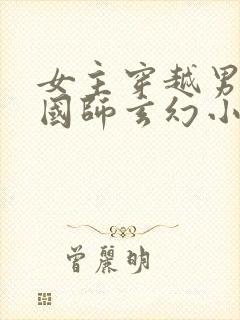 女主穿越男
國師玄幻小
曾麗明